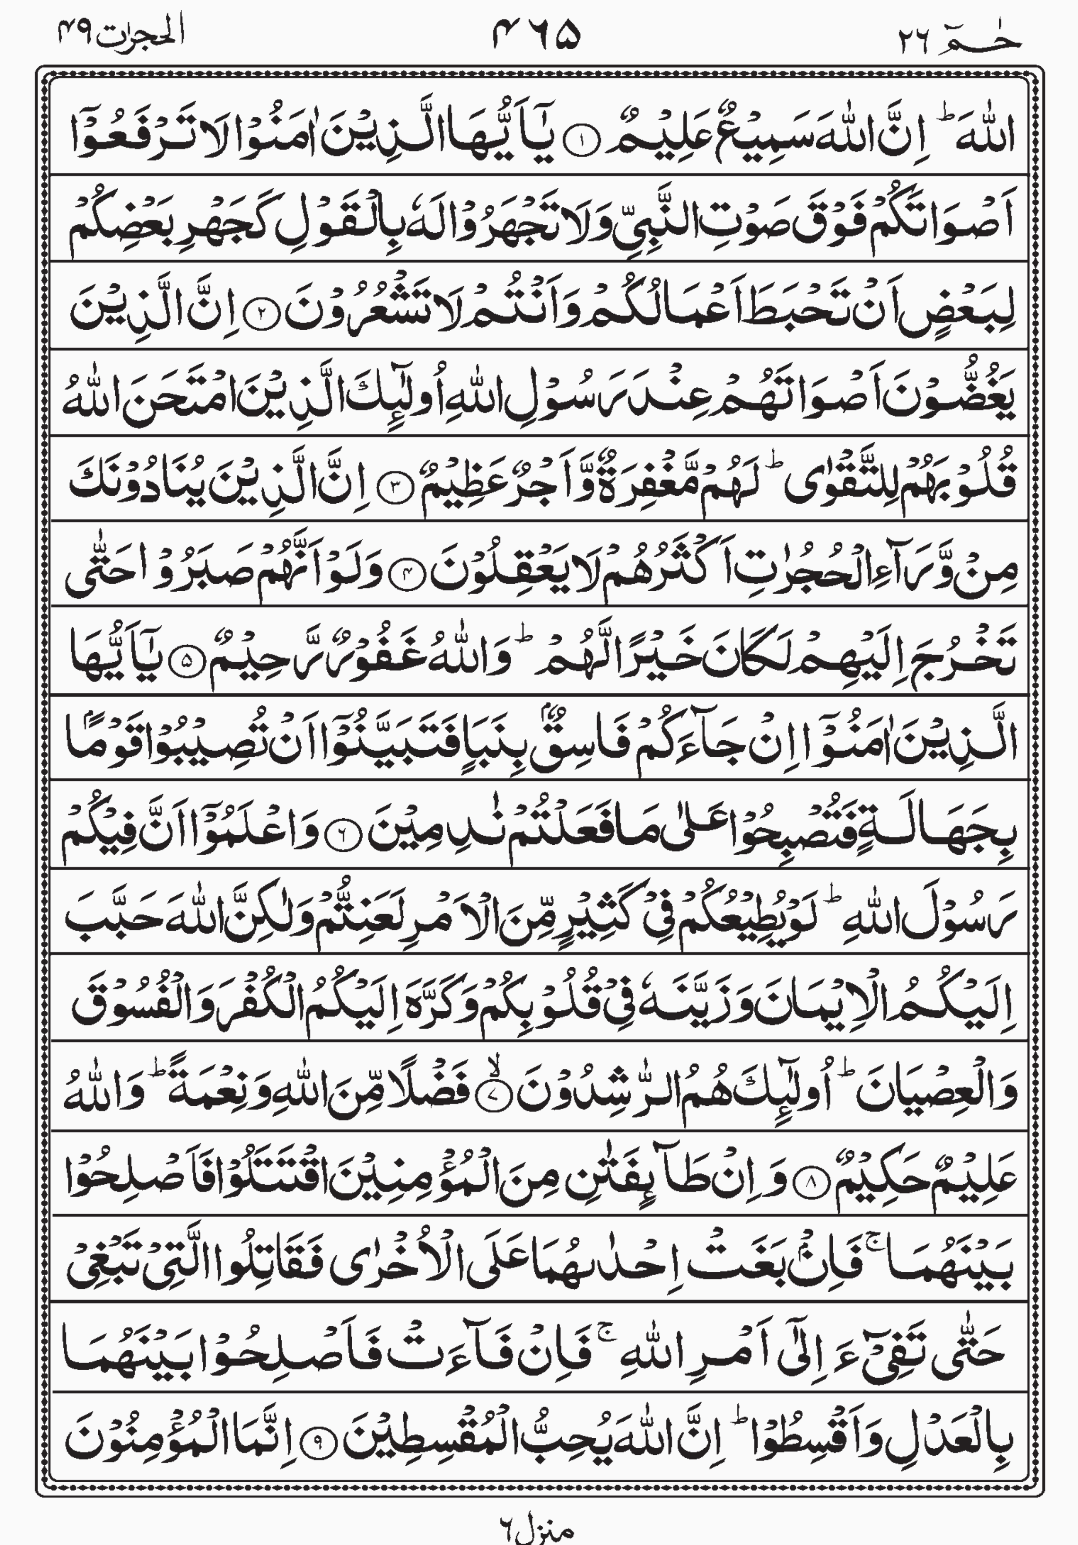 حٰـمٓ ٢٦ ۴٦۵ الحجرٰت ۴۹
اللّٰهَ ؕ اِنَّ اللّٰهَ سَمِيۡعٌ عَلِيۡمٌ ﴿۱﴾ يٰۤاَيُّهَا الَّذِيۡنَ اٰمَنُوۡا لَا تَرۡفَعُوۡۤا
اَصۡوَاتَكُمۡ فَوۡقَ صَوۡتِ النَّبِىِّ وَلَا تَجۡهَرُوۡا لَهٗ بِالۡقَوۡلِ كَجَهۡرِ بَعۡضِكُمۡ
لِبَعۡضٍ اَنۡ تَحۡبَطَ اَعۡمَالُكُمۡ وَاَنۡتُمۡ لَا تَشۡعُرُوۡنَ ﴿۲﴾ اِنَّ الَّذِيۡنَ
يَغُضُّوۡنَ اَصۡوَاتَهُمۡ عِنۡدَ رَسُوۡلِ اللّٰهِ اُولٰٓٮِٕكَ الَّذِيۡنَ امۡتَحَنَ اللّٰهُ
قُلُوۡبَهُمۡ لِلتَّقۡوٰى ؕ لَهُمۡ مَّغۡفِرَةٌ وَّاَجۡرٌ عَظِيۡمٌ ﴿۳﴾ اِنَّ الَّذِيۡنَ يُنَادُوۡنَكَ
مِنۡ وَّرَآءِ الۡحُجُرٰتِ اَكۡثَرُهُمۡ لَا يَعۡقِلُوۡنَ ﴿۴﴾ وَلَوۡ اَنَّهُمۡ صَبَرُوۡا حَتّٰى
تَخۡرُجَ اِلَيۡهِمۡ لَكَانَ خَيۡرًا لَّهُمۡ ؕ وَاللّٰهُ غَفُوۡرٌ رَّحِيۡمٌ ﴿۵﴾ يٰۤاَيُّهَا
الَّذِيۡنَ اٰمَنُوۡۤا اِنۡ جَآءَكُمۡ فَاسِقٌۢ بِنَبَاٍ فَتَبَيَّنُوۡۤا اَنۡ تُصِيۡبُوۡا قَوۡمًۢا
بِجَهَالَةٍ فَتُصۡبِحُوۡا عَلٰى مَا فَعَلۡتُمۡ نٰدِمِيۡنَ ﴿۶﴾ وَاعۡلَمُوۡۤا اَنَّ فِيۡكُمۡ
رَسُوۡلَ اللّٰهِ ؕ لَوۡ يُطِيۡعُكُمۡ فِىۡ كَثِيۡرٍ مِّنَ الۡاَمۡرِ لَعَنِتُّمۡ وَلٰكِنَّ اللّٰهَ حَبَّبَ
اِلَيۡكُمُ الۡاِيۡمَانَ وَزَيَّنَهٗ فِىۡ قُلُوۡبِكُمۡ وَكَرَّهَ اِلَيۡكُمُ الۡكُفۡرَ وَالۡفُسُوۡقَ
وَالۡعِصۡيَانَ ؕ اُولٰٓٮِٕكَ هُمُ الرّٰشِدُوۡنَ ۙ ﴿۷﴾ فَضۡلًا مِّنَ اللّٰهِ وَنِعۡمَةً ؕ وَاللّٰهُ
عَلِيۡمٌ حَكِيۡمٌ ﴿۸﴾ وَاِنۡ طَآٮِٕفَتٰنِ مِنَ الۡمُؤۡمِنِيۡنَ اقۡتَتَلُوۡا فَاَصۡلِحُوۡا
بَيۡنَهُمَا ۚ فَاِنۡۢ بَغَتۡ اِحۡدٰٮهُمَا عَلَى الۡاُخۡرٰى فَقَاتِلُوا الَّتِىۡ تَبۡغِىۡ
حَتّٰى تَفِىۡٓءَ اِلٰٓى اَمۡرِ اللّٰهِ ۚ فَاِنۡ فَآءَتۡ فَاَصۡلِحُوۡا بَيۡنَهُمَا
بِالۡعَدۡلِ وَاَقۡسِطُوۡا ؕ اِنَّ اللّٰهَ يُحِبُّ الۡمُقۡسِطِيۡنَ ﴿۹﴾ اِنَّمَا الۡمُؤۡمِنُوۡنَ
منزل ٦